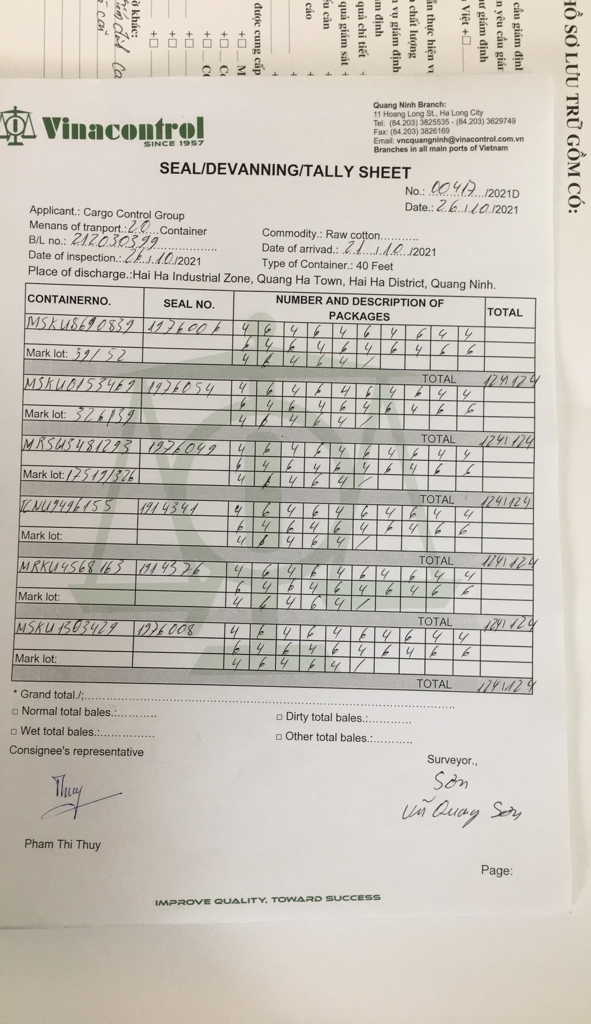 HỒ SƠ LƯU TRỮ GỒM CÓ:
Vinacontrol
SINCE 1957
Quang Ninh Branch:
11 Hoang Long St., Ha Long City
Tel: (84.203) 3825535 - (84.203) 3629749
Fax: (84.203) 3826169
Email: vncquangninh@vinacontrol.com.vn
Branches in all main ports of Vietnam
SEAL/DEVANNING/TALLY SHEET
No.: 00417 /2021D
Date.: 26/10/2021
Applicant.: Cargo Control Group
Menans of tranport.: 20 Container
Commodity.: Raw cotton
B/L no.: 212030399
Date of arrivad.: 21/10/2021
Date of inspection.: 26/10/2021
Type of Container.: 40 Feet
Place of discharge.:Hai Ha Industrial Zone, Quang Ha Town, Hai Ha District, Quang Ninh.
CONTAINERNO. SEAL NO. NUMBER AND DESCRIPTION OF PACKAGES TOTAL
MSKU8690839 4 6 4 6 4 6 4 6 4 4
6 4 6 4 6 4 6 4 6 6
Mark lot: 39/52 4 6 4 6 4 /
TOTAL 124/124
MSKU0153469 1976054 4 6 4 6 4 6 4 6 4 4
6 4 6 4 6 4 6 4 6 6
Mark lot: 326/139 4 6 4 6 4 /
TOTAL 124/124
MRSU3481293 1976049 4 6 4 6 4 6 4 6 4 4
6 4 6 4 6 4 6 4 6 6
Mark lot: 4 6 4 6 4 /
TOTAL 124/124
1914341 4 6 4 6 4 6 4 6 4 4
6 4 6 4 6 4 6 4 6 6
Mark lot: 4 6 4 6 4 /
TOTAL 124/124
MRKU4568163 1914376 4 6 4 6 4 6 4 6 4 4
6 4 6 4 6 4 6 4 6 6
Mark lot: 4 6 4 6 4 /
TOTAL 124/124
MSKU1303429 1976008 4 6 4 6 4 6 4 6 4 4
6 4 6 4 6 4 6 4 6 6
Mark lot: 4 6 4 6 4 /
TOTAL 124/124
* Grand total./:
□ Normal total bales.:
□ Dirty total bales.:
□ Wet total bales.:
□ Other total bales.:
Consignee's representative
Surveyor.,
Thuy
Sơn
Vũ Quang Sơn
Pham Thi Thuy
Page:
IMPROVE QUALITY, TOWARD SUCCESS